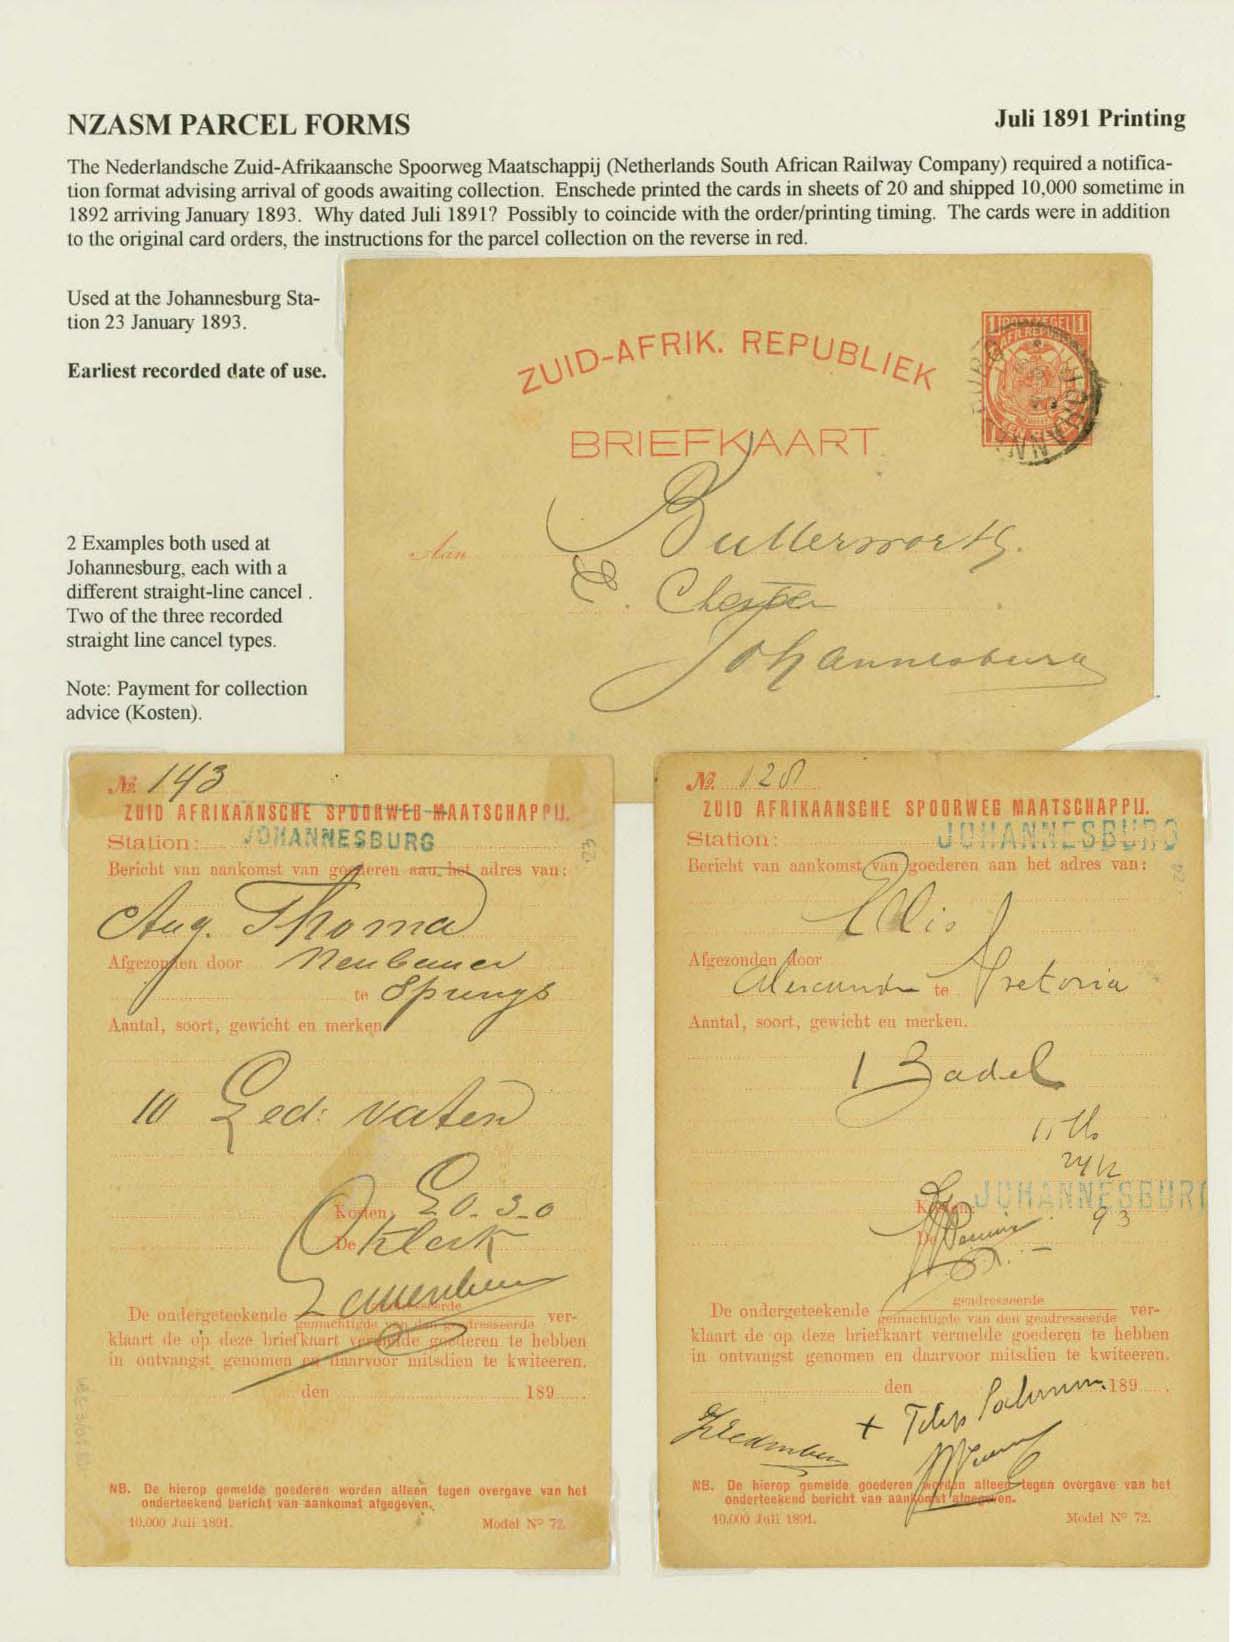 NZASM PARCEL FORMS
Juli 1891 Printing
The Nederlandsche Zuid-Afrikaansche Spoorweg Maatschappij (Netherlands South African Railway Company) required a notifica-
tion format advising arrival of goods awaiting collection. Enschede printed the cards in sheets of 20 and shipped 10,000 sometime in
1892 arriving January 1893. Why dated Juli 1891? Possibly to coincide with the order/printing timing. The cards were in addition
to the original card orders, the instructions for the parcel collection on the reverse in red.
Used at the Johannesburg Sta-
tion 23 January 1893.
Earliest recorded date of use.
2 Examples both used at
Johannesburg, each with a
different straight-line cancel .
Two of the three recorded
straight line cancel types.
Note: Payment for collection
advice (Kosten).
ZUID-AFRIK. REPUBLIEK
1 POSTZEGEL 1
BRIEFKAART
Aan Butterworth.
Johannesburg
No. 143
ZUID AFRIKAANSCHE SPOORWEG-MAATSCHAPPIJ.
Station: JOHANNESBURG
Bericht van aankomst van goederen aan het adres van:
Aug. Thoma
Afgezonden door
te Springs
Aantal, soort, gewicht en merken
10 Led: vaten
Kosten, £0.3.0
De Klerk
De ondergeteekende geadresseerde ver-
gemachtigde van den geadresseerde
klaart de op deze briefkaart vermelde goederen te hebben
in ontvangst genomen en daarvoor mitsdien te kwiteeren.
den 189
NB. De hierop gemelde goederen worden alleen tegen overgave van het
onderteekend bericht van aankomst afgegeven.
10.000 Juli 1891. Model No 72.
No. 128
ZUID AFRIKAANSCHE SPOORWEG MAATSCHAPPIJ.
Station: JOHANNESBURG
Bericht van aankomst van goederen aan het adres van:
Ellis
Afgezonden door
te Pretoria
Aantal, soort, gewicht en merken.
1 Zadel
Kosten, JOHANNESBURG
De 93
De ondergeteekende geadresseerde ver-
gemachtigde van den geadresseerde
klaart de op deze briefkaart vermelde goederen te hebben
in ontvangst genomen en daarvoor mitsdien te kwiteeren.
den 189
NB. De hierop gemelde goederen worden alleen tegen overgave van het
onderteekend bericht van aankomst afgegeven.
10.000 Juli 1891. Model No 72.